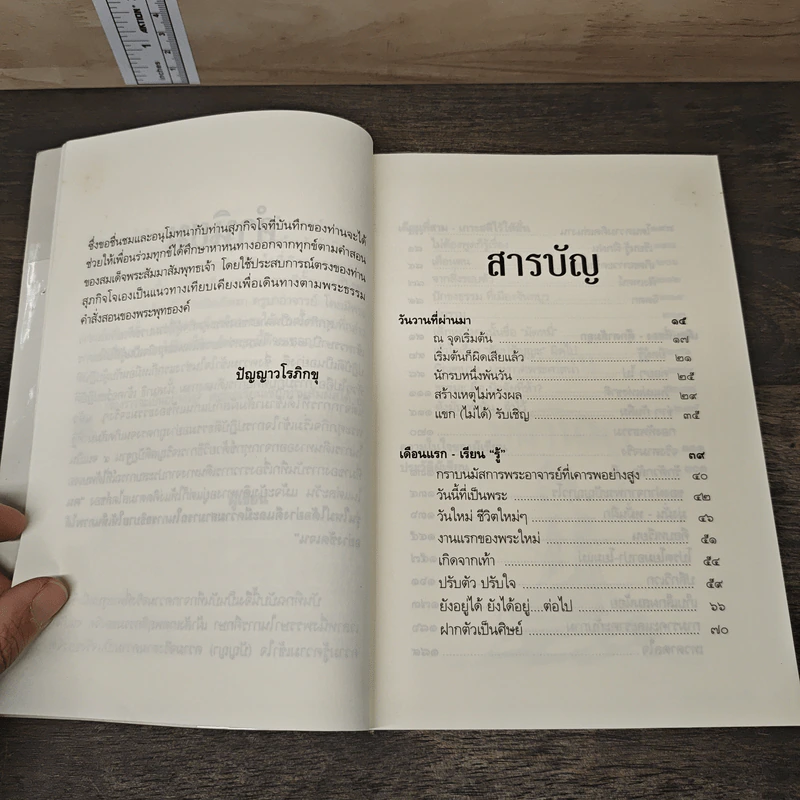 ซึ่งขอชื่นชมและอนุโมทนากับท่านสุภกิจโจที่บันทึกของท่านจะได้
ช่วยให้เพื่อนร่วมทุกข์ได้ศึกษาหาหนทางออกจากทุกข์ตามคำสอน
ของสมเด็จพระสัมมาสัมพุทธเจ้า โดยใช้ประสบการณ์ตรงของท่าน
สุภกิจโจเองเป็นแนวทางเทียบเคียงเพื่อเดินทางตามพระธรรม
คำสั่งสอนของพระพุทธองค์
ปัญญาวโรภิกขุ
สารบัญ
วันวานที่ผ่านมา ๑๔
ณ จุดเริ่มต้น ๑๗
เริ่มต้นก็ผิดเสียแล้ว ๒๑
นักรบหนึ่งพันวัน ๒๕
สร้างเหตุไม่หวังผล ๒๙
แขก (ไม่ได้) รับเชิญ ๓๕
เดือนแรก - เรียน "รู้" ๓๙
กราบนมัสการพระอาจารย์ที่เคารพอย่างสูง ๔๐
วันนี้ที่เป็นพระ ๔๒
วันใหม่ ชีวิตใหม่ๆ ๔๖
งานแรกของพระใหม่ ๕๑
เกิดจากเท้า ๕๔
ปรับตัว ปรับใจ ๕๙
ยังอยู่ได้ ยังได้อยู่...ต่อไป ๖๖
ฝากตัวเป็นศิษย์ ๗๐